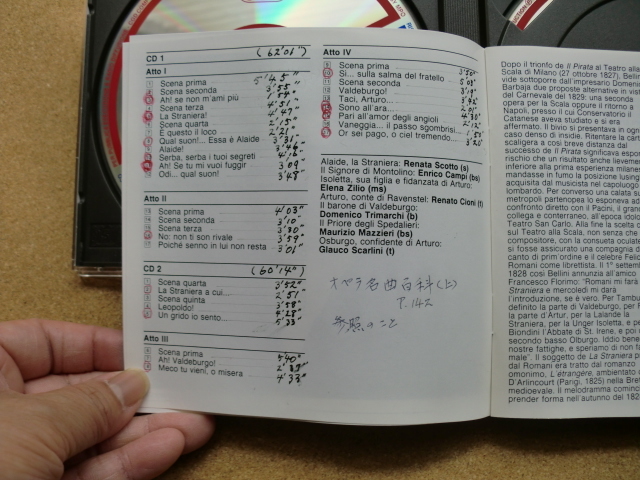 CD 1 (62'01")
Atto I
Scena prima 5'45"
Scena seconda 3'55"
Ah! se non m'ami più 1'54"
Scena terza 4'51"
La Straniera! 4'47"
Scena quarta 2'15"
È questo il loco 2'21"
Qual suon!... Essa è Alaide 3'31"
Alaide!
Serba, serba i tuoi segreti
Ah! Se tu mi vuoi fuggir 3'09"
Odi... qual suon! 3'48"
Atto II
Scena prima 4'03"
Scena seconda 3'10"
Scena terza 3'30"
No: non ti son rivale 3'59"
Poiché senno in lui non resta 3'01"
CD 2 (60'14")
Scena quarta 3'52"
La Straniera a cui... 2'51"
Scena quinta 3'58"
Leopoldo! 4'28"
Un grido io sento... 5'33"
Atto III
Scena prima 5'40"
Ah! Valdeburgo!
Meco tu vieni, o misera 4'33"
Atto IV
Scena prima 3'50"
Sì... sulla salma del fratello 5'03"
Valdeburgo! 3'19"
Taci, Arturo... 3'42"
Sono all'ara... 2'01"
Pari all'amor degli angioli 4'30"
Vaneggia... il passo sgombrisi 2'12"
Or sei pago, o ciel tremendo... 3'20"
Alaide, la Straniera: Renata Scotto (s)
Il Signore di Montolino: Enrico Campi (bs)
Isoletta, sua figlia e fidanzata di Arturo:
Elena Zilio (ms)
Arturo, conte di Ravenstel: Renato Cioni (t)
Il barone di Valdeburgo:
Domenico Trimarchi (b)
Il Priore degli Spedalieri:
Maurizio Mazzieri (bs)
Osburgo, confidente di Arturo:
Glauco Scarlini (t)
オペラ名曲百科(上)
P.142
参照のこと
Dopo il trionfo de Il Pirata al Teatro alla
Scala di Milano (27 ottobre 1827), Bellini
vide sottoporre dall'impresario Domenico
Barbaja due proposte alternative in
del Carnevale del 1829: una seconda
opera per la Scala oppure il ritorno a
Napoli, presso il cui Conservatorio il
Catanese aveva studiato e si era
affermato. Il bivio si presentava in ogni
caso denso di insidie. Ritentare la carta
scaligera a così breve distanza dal
successo de Il Pirata significava esporsi
rischio che un risultato anche lievemente
inferiore alla prima esperienza milanese
mandasse in fumo la posizione
acquisita dal musicista nel capoluogo
lombardo. Per converso una calata sulla
metropoli partenopea lo esponeva al
confronto diretto con il Pacini, il grande
collega e conterraneo, all'epoca idolo
Teatro San Carlo. Alla fine la scelta cadde
sul Teatro alla Scala, non senza che
compositore, con la consueta oculatezza
si fosse assicurato una compagnia di
canto di prim ordine e il celebre Felice
Romani come librettista. Il 1° settembre
1828 così Bellini annunzia all'amico
Francesco Florimo: "Romani mi farà
Straniera e mercoledì mi darà
l'introduzione, se è vero. Per Tamburini
definito la parte di Valdeburgo, per
la parte d'Artur, per la Lalande la
Straniera, per la Unger Isoletta, e per
Biondini l'Abbate di St. Irene, e poi
secondo basso Olburgo. Iddio benedica
nostre fattighe, e speriamo di non far
male". Il soggetto de La Straniera
dal Romani era tratto dal romanzo
omonimo, L'étrangère, ambientato
D'Arlincourt (Parigi, 1825) nella Bretagna
medioevale. Il melodramma cominciò
prender forma nell'autunno del 1828